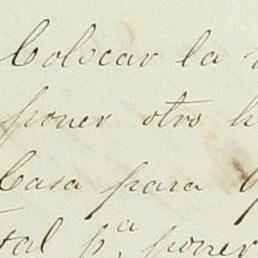 Colocar la
poner otro h
Casa para q
tal pª poner